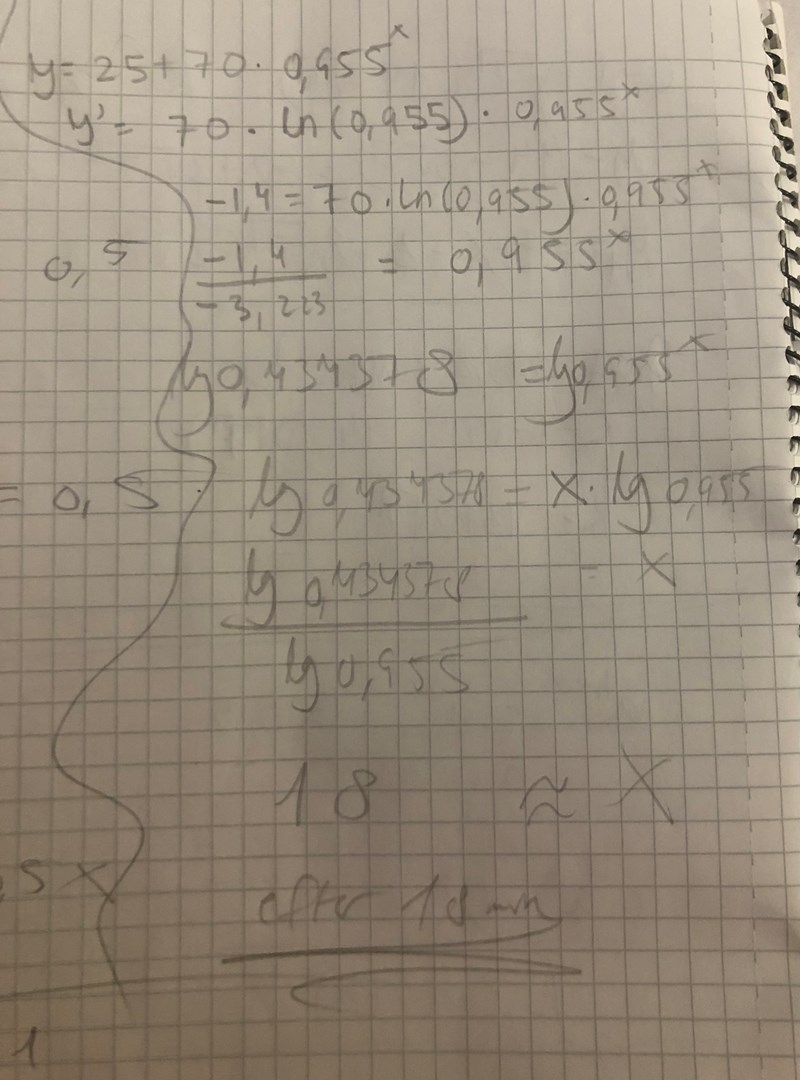 y = 25 + 70 · 0,955^x
y' = 70 · ln(0,955) · 0,955^x
-1,4 = 70 · ln(0,955) · 0,955^x
0,5
-1,4 / -3,223 = 0,955^x
lg 0,434378 = lg 0,955^x
= 0,5
lg 0,434378 = x · lg 0,955
lg 0,434378 / lg 0,955 = x
18 ≈ x
,5 x
after 18 min
1